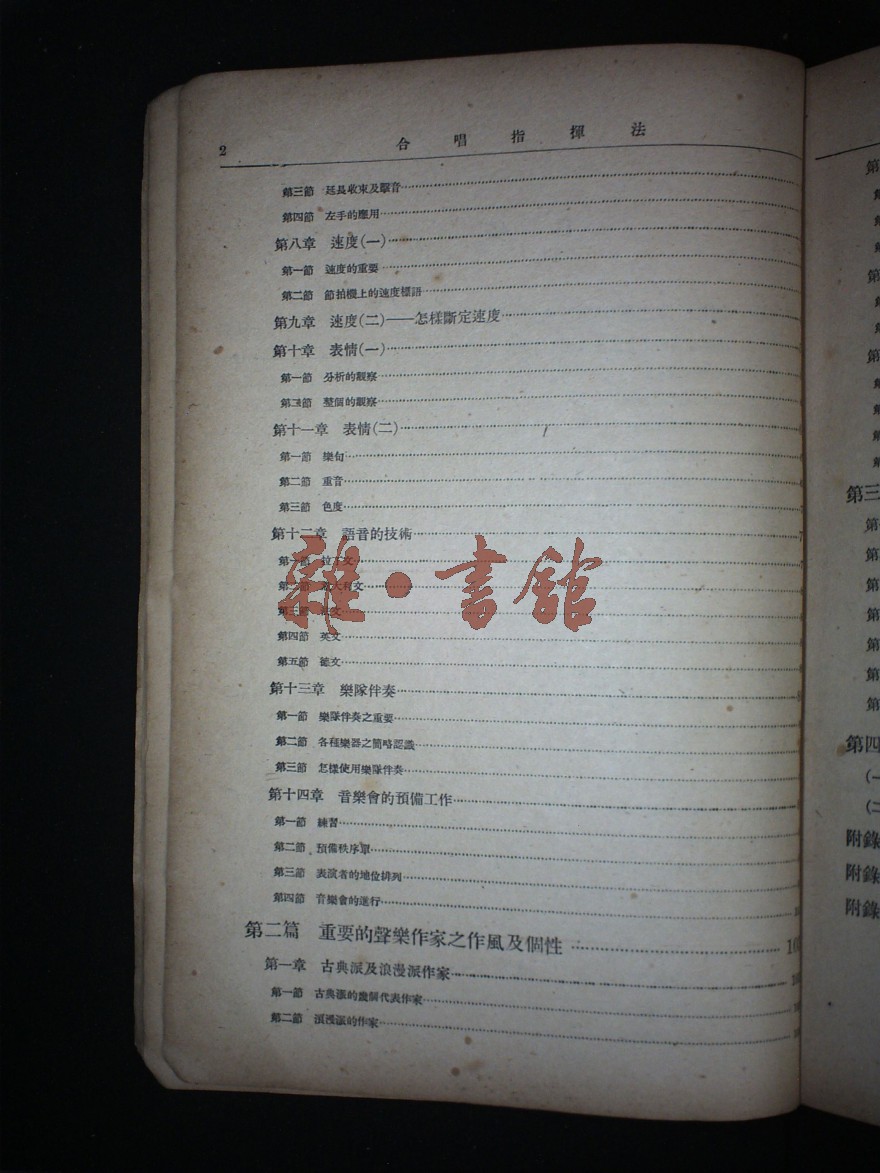 2
合唱指揮法
第三節 延長收束及斷音
第四節 左手的應用
第八章 速度(一)
第一節 速度的重要
第二節 節拍機上的速度標語
第九章 速度(二)——怎樣斷定速度
第十章 表情(一)
第一節 分析的觀察
第二節 整個的觀察
第十一章 表情(二)
第一節 樂句
第二節 重音
第三節 色度
第十二章 語音的技術
第一節 拉丁文
第二節 意大利文
第三節 法文
第四節 英文
第五節 德文
第十三章 樂隊伴奏
第一節 樂隊伴奏之重要
第二節 各種樂器之簡略認識
第三節 怎樣使用樂隊伴奏
第十四章 音樂會的預備工作
第一節 練習
第二節 預備秩序單
第三節 表演者的地位排列
第四節 音樂會的進行
第二篇 重要的聲樂作家之作風及個性
第一章 古典派及浪漫派作家
第一節 古典派的幾個代表作家
第二節 浪漫派的作家
雜·書館
第三
第四
(一
(二
附錄
附錄
附錄